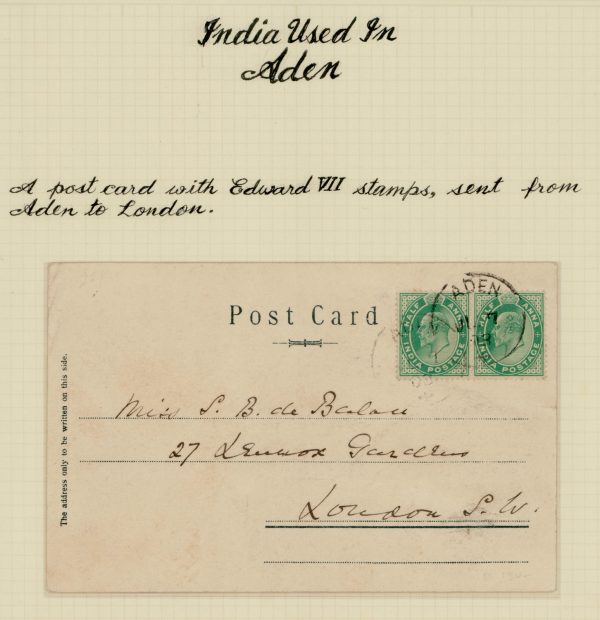 India Used In
Aden
A post card with Edward VII stamps, sent from
Aden to London.
Post Card
ADEN
HALF ANNA
INDIA POSTAGE
HALF ANNA
INDIA POSTAGE
The address only to be written on this side.
Miss S. B. de
27 Lennox Gardens
London S.W.